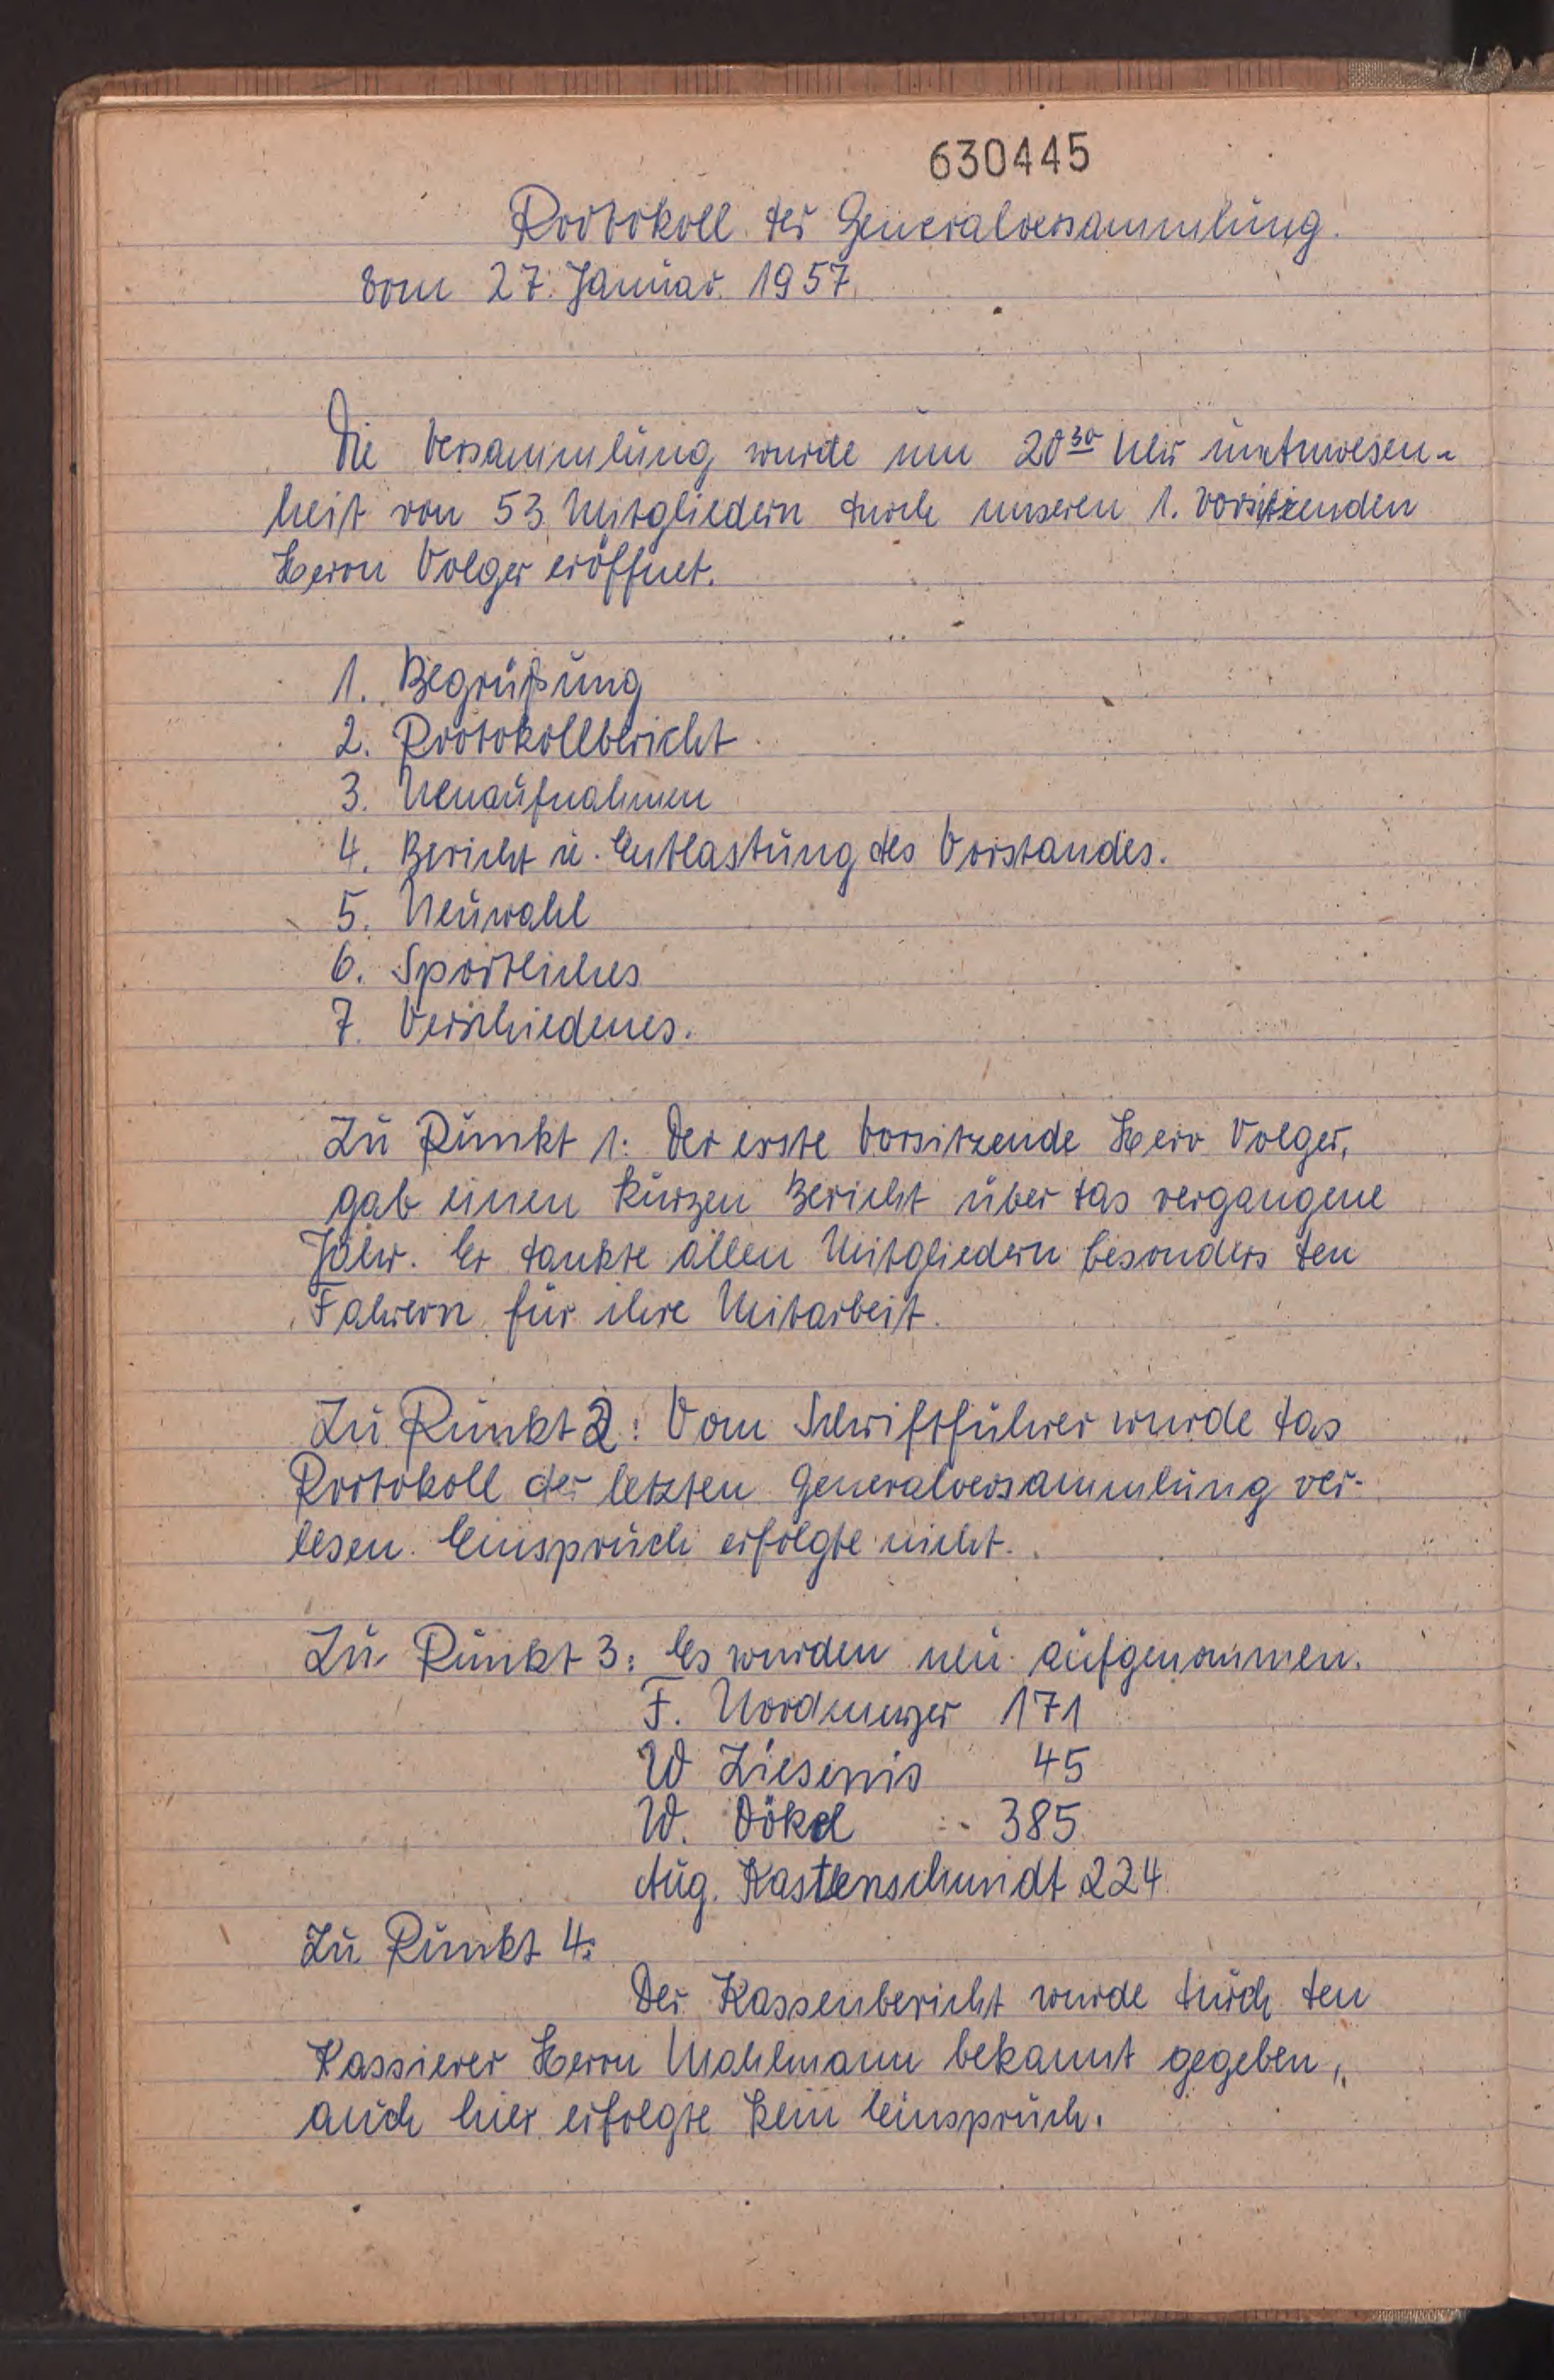 630445
Protokoll der Generalversammlung.
vom 27. Januar 1957.
Die Versammlung wurde um 20³⁰ Uhr in Anwesen-
heit von 53 Mitgliedern durch unseren 1. Vorsitzenden
Herrn Volger eröffnet.
1. Begrüßung
2. Protokollbericht
3. Neuaufnahmen
4. Bericht u. Entlastung des Vorstandes.
5. Neuwahl
6. Sportliches
7. Verschiedenes.
Zu Punkt 1: Der erste Vorsitzende Herr Volger,
gab einen kurzen Bericht über das vergangene
Jahr. Er dankte allen Mitgliedern besonders den
Fahrern für ihre Mitarbeit.
Zu Punkt 2: Vom Schriftführer wurde das
Protokoll der letzten Generalversammlung ver-
lesen. Einspruch erfolgte nicht.
Zu Punkt 3: Es wurden neu aufgenommen.
F. Nordmeyer 171
W Ziesenis 45
W. 385
Aug. Kastenschmidt 224
Zu Punkt 4:
Der Kassenbericht wurde durch den
Kassierer Herrn Mahlmann bekannt gegeben,
auch hier erfolgte kein Einspruch.